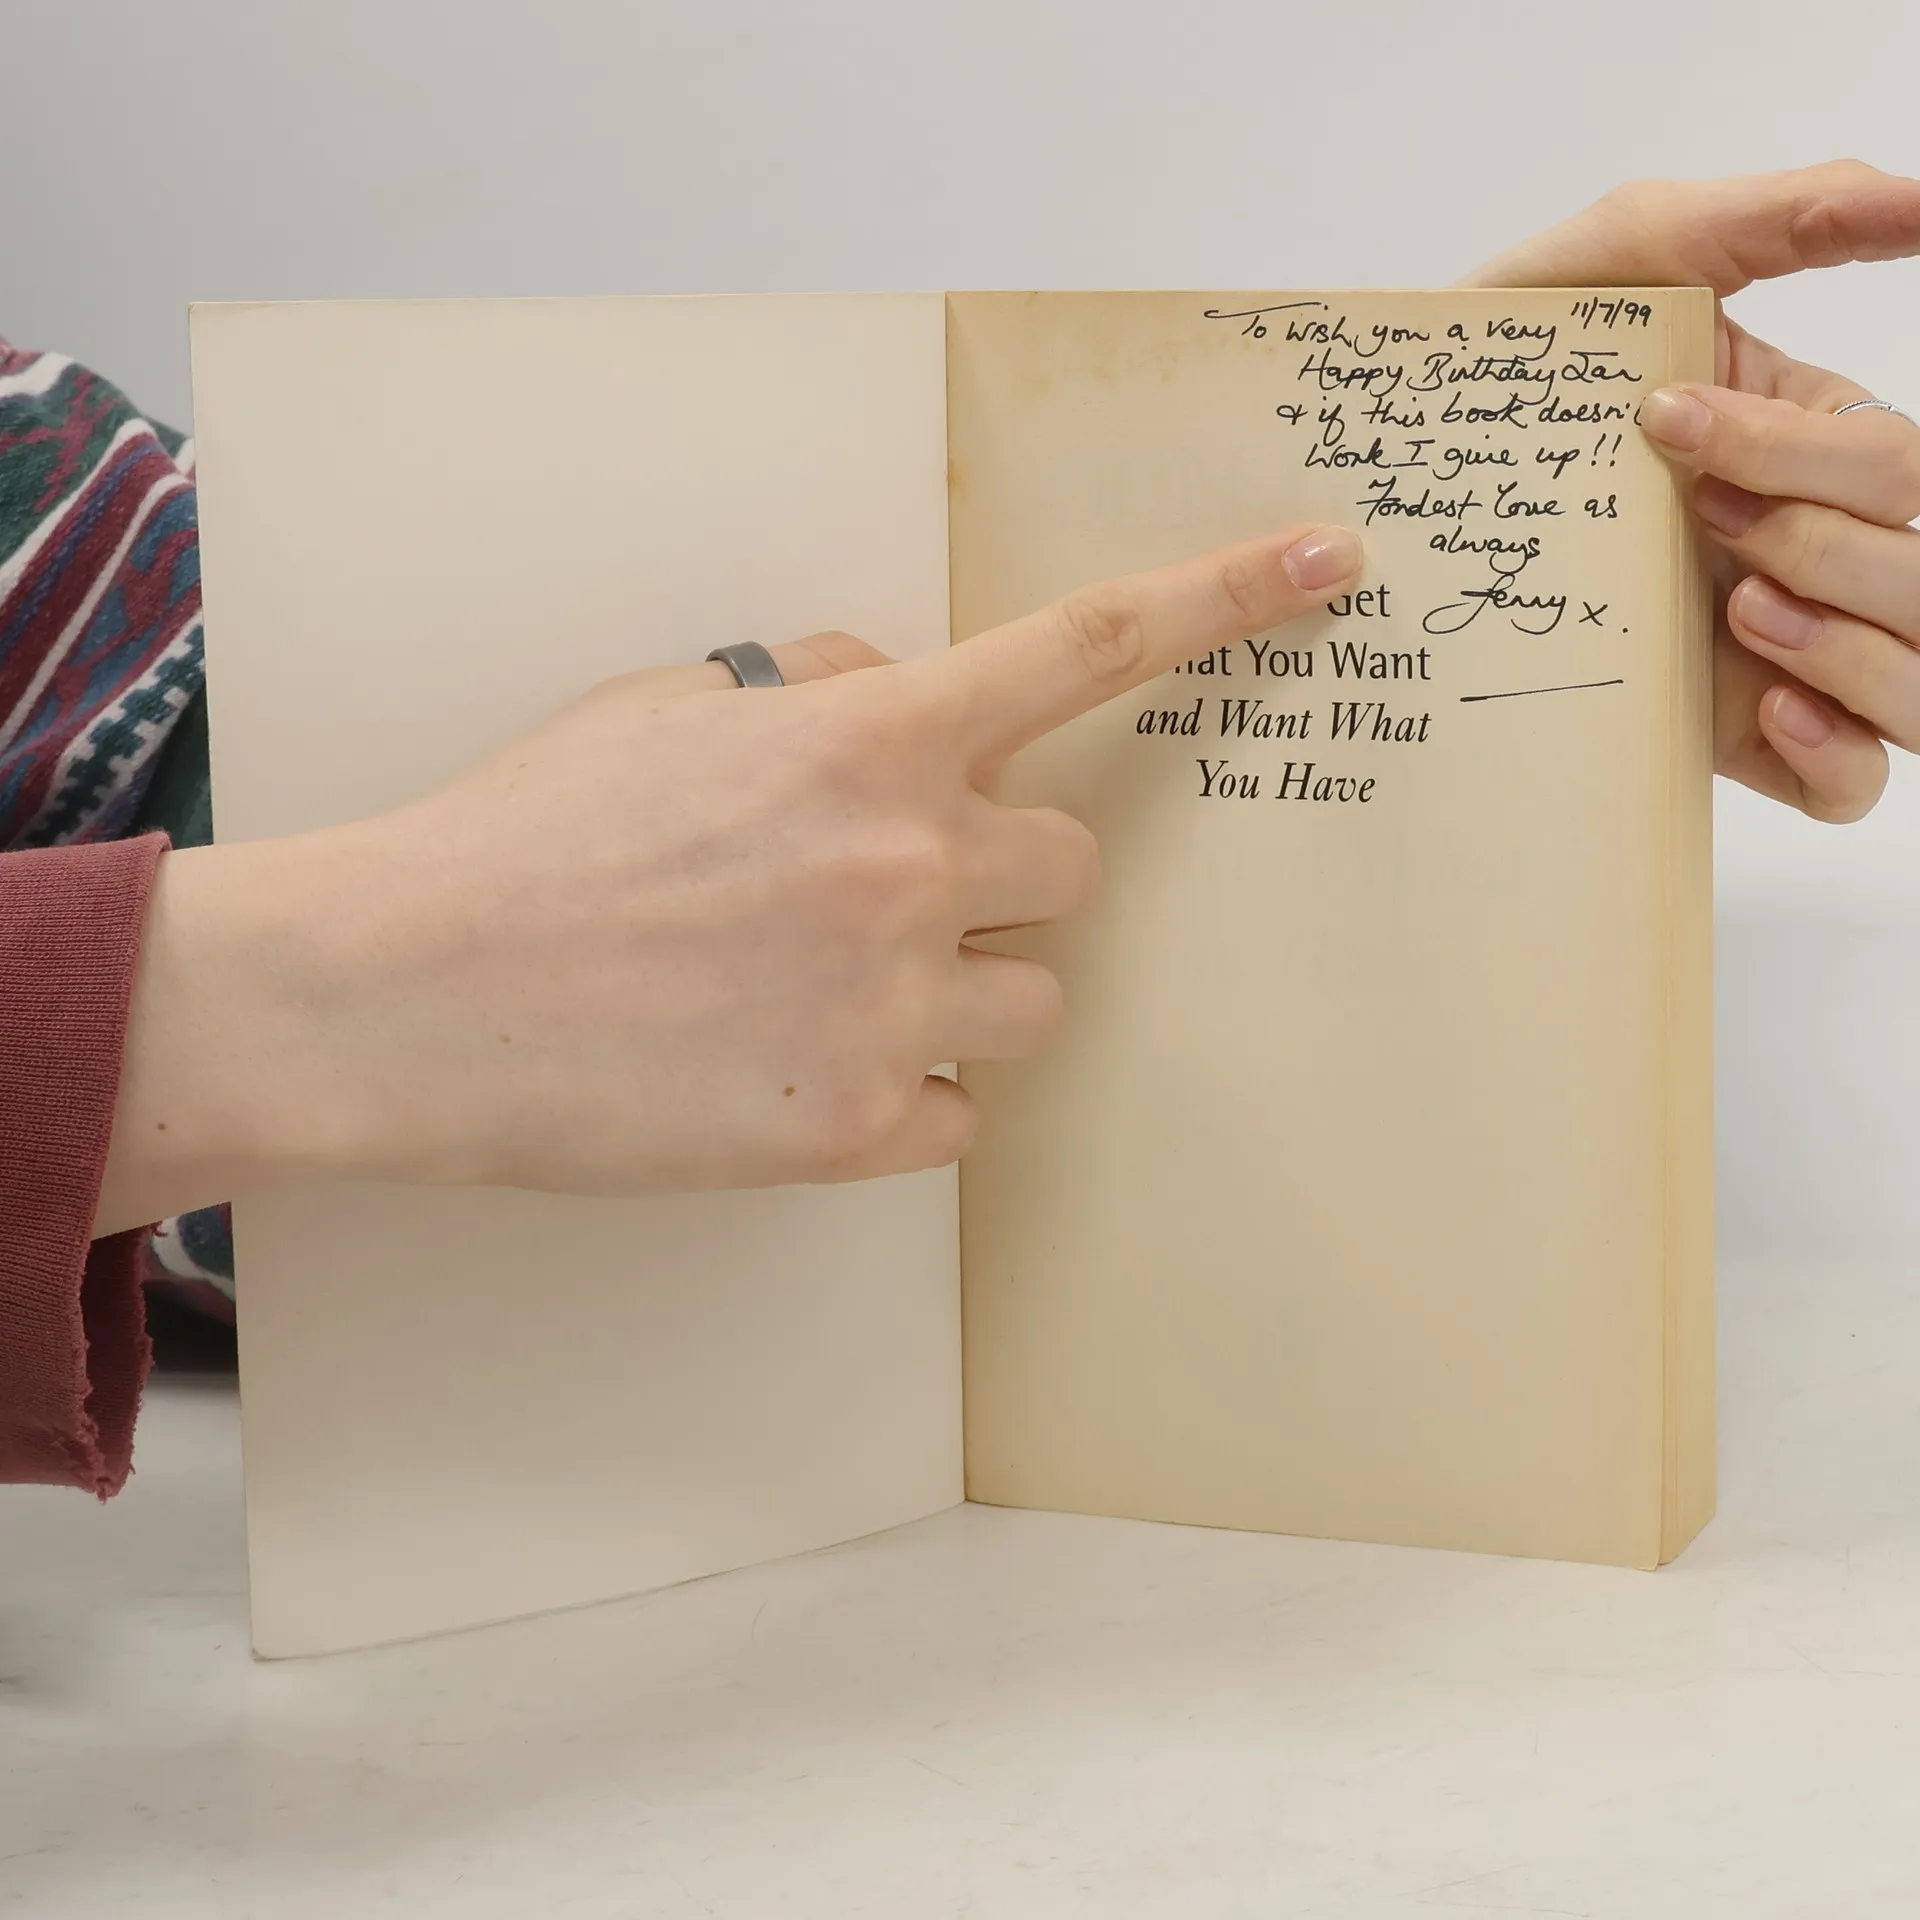 11/7/99
To wish you a very
Happy Birthday Jan
& if this book doesn't
work I give up!!
Fondest Love as
always
Jenny x.
Get
You Want
and Want What
You Have